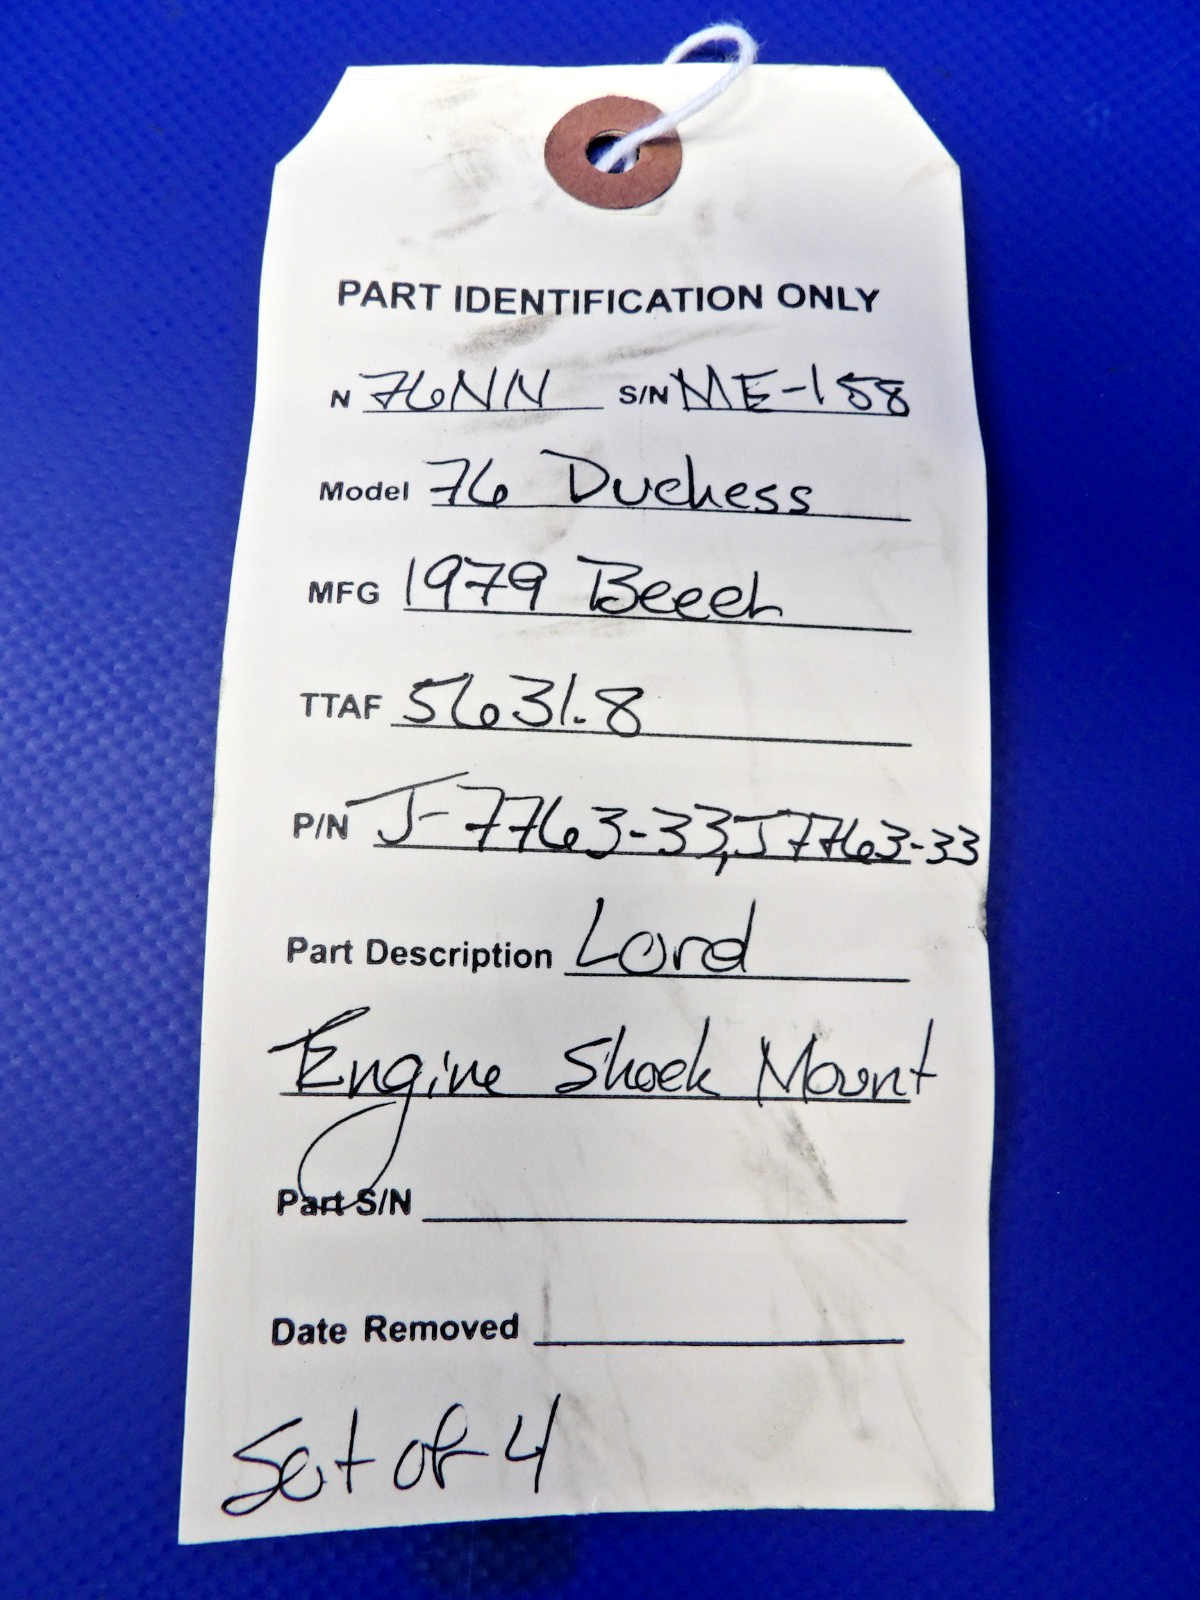 PART IDENTIFICATION ONLY
N 76NN S/N ME-158
Model 76 Duchess
MFG 1979 Beech
TTAF 5631.8
P/N J-7763-33, J7763-33
Part Description Lord
Engine Shock Mount
Part S/N
Date Removed
Set of 4